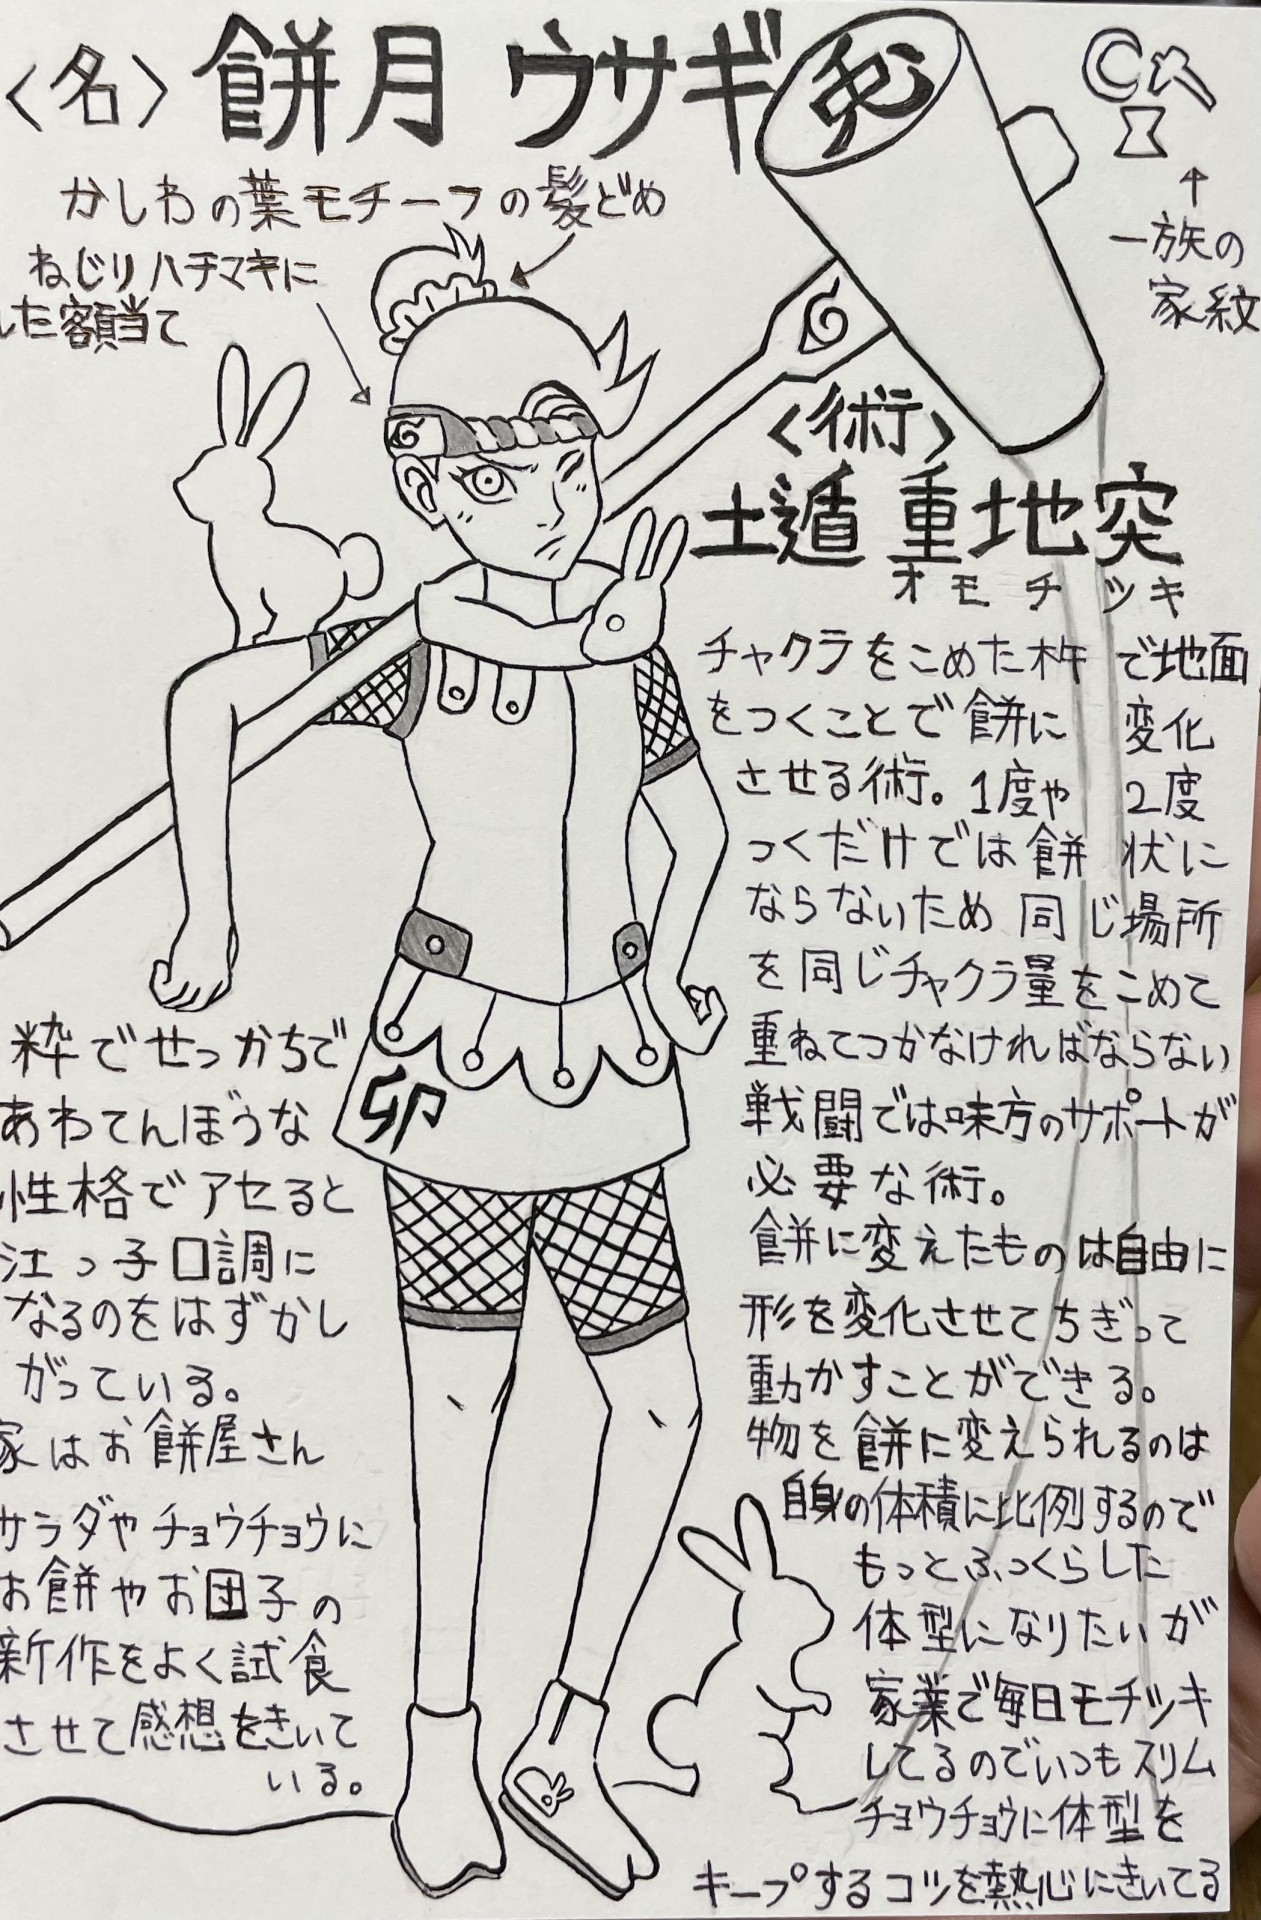 〈名〉餅月 ウサギ
兎
かしわの葉モチーフの髪どめ
ねじりハチマキに
した額当て
↑
一族の
家紋
〈術〉
土遁 重地突
オモチツキ
チャクラをこめた杵で地面
をつくことで餅に変化
させる術。1度や2度
つくだけでは餅状に
ならないため同じ場所
を同じチャクラ量をこめて
重ねてつかなければならない
戦闘では味方のサポートが
必要な術。
餅に変えたものは自由に
形を変化させてちぎって
動かすことができる。
物を餅に変えられるのは
自身の体積に比例するので
もっとふっくらした
体型になりたいが
家業で毎日モチツキ
してるのでいつもスリム
チョウチョウに体型を
キープするコツを熱心にきいてる
卯
粋でせっかちで
あわてんぼうな
性格でアセると
江っ子口調に
なるのをはずかし
がっている。
家はお餅屋さん
サラダやチョウチョウに
お餅やお団子の
新作をよく試食
させて感想をきいて
いる。